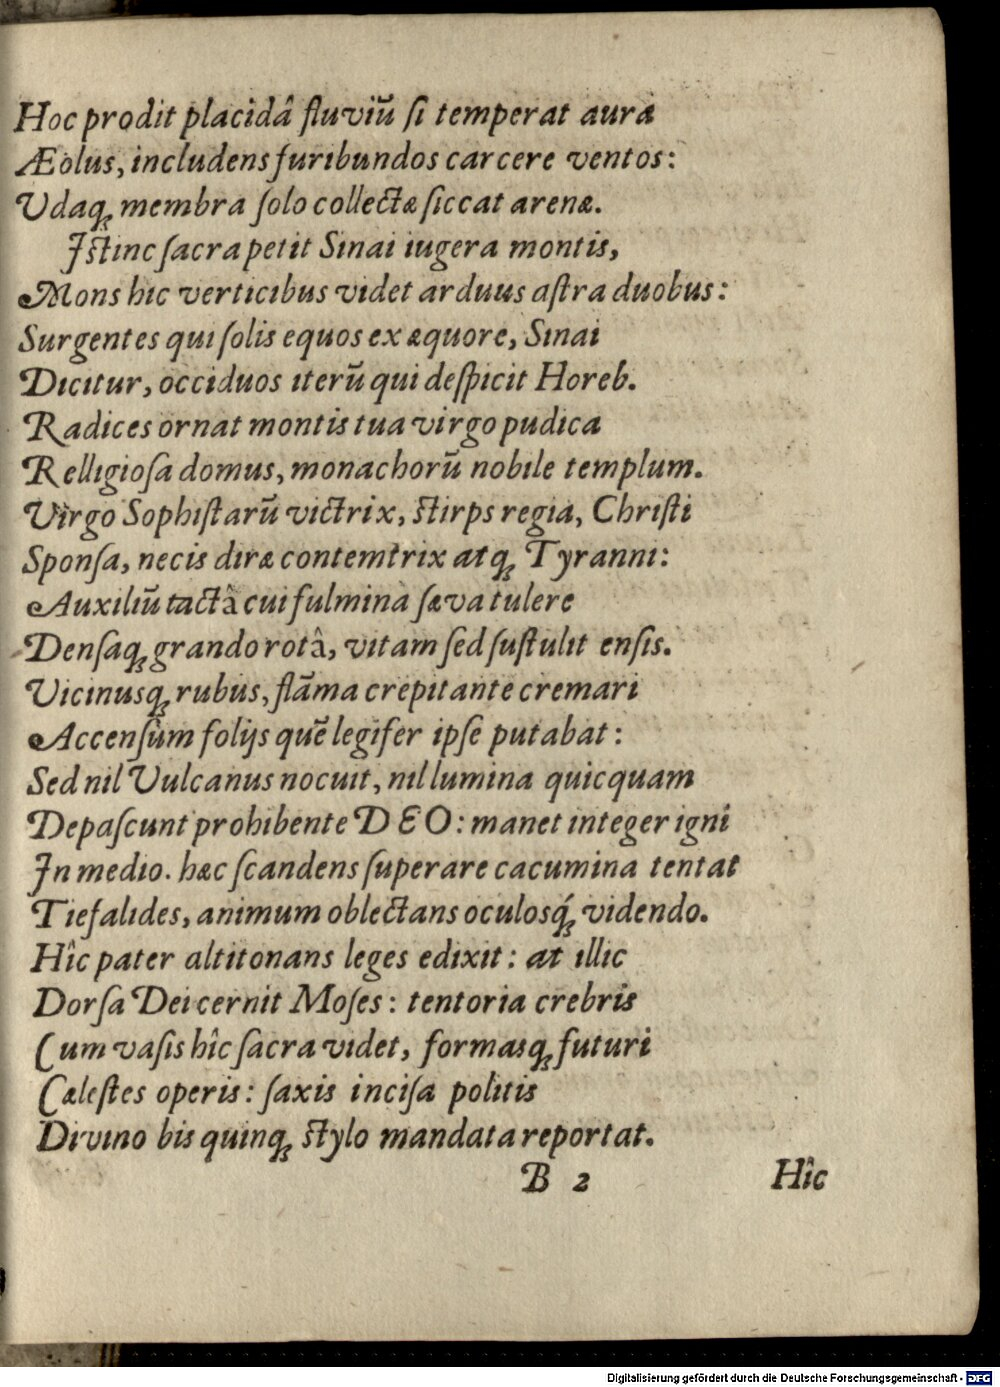 Hoc prodit placidâ fluviũ ſi temperat aura
Æolus, includens furibundos carcere ventos:
Udaq́ꝫ membra ſolo collectæ ſiccat arenæ.
Iſtinc ſacra petit Sinai iugera montis,
Mons hic verticibus videt arduus aſtra duobus:
Surgentes qui ſolis equos ex æquore, Sinai
Dicitur, occiduos iterũ qui deſpicit Horeb.
Radices ornat montis tua virgo pudica
Relligioſa domus, monachorũ nobile templum.
Virgo Sophiſtarũ victrix, ſtirps regia, Chriſti
Sponſa, necis diræ contemtrix atqꝫ Tyranni:
Auxiliũ tactâ cui fulmina ſæva tulere
Denſaqꝫ grando rotâ, vitam ſed ſuſtulit enſis.
Vicinusqꝫ rubus, flãma crepitante cremari
Accenſùm folijs quẽ legifer ipſe putabat:
Sed nil Vulcanus nocuit, nil lumina quicquam
Depaſcunt prohibente DEO: manet integer igni
In medio. hæc ſcandens ſuperare cacumina tentat
Tiefalides, animum oblectans oculosq́ꝫ videndo.
Hîc pater altitonans leges edixit: at illic
Dorſa Dei cernit Moſes: tentoria crebris
Cum vaſis hîc ſacra videt, formasqꝫ futuri
Cæleſtes operis: ſaxis inciſa politis
Divino bis quinqꝫ ſtylo mandata reportat.
B 2 Hîc
Digitalisierung gefördert durch die Deutsche Forschungsgemeinschaft - DFG